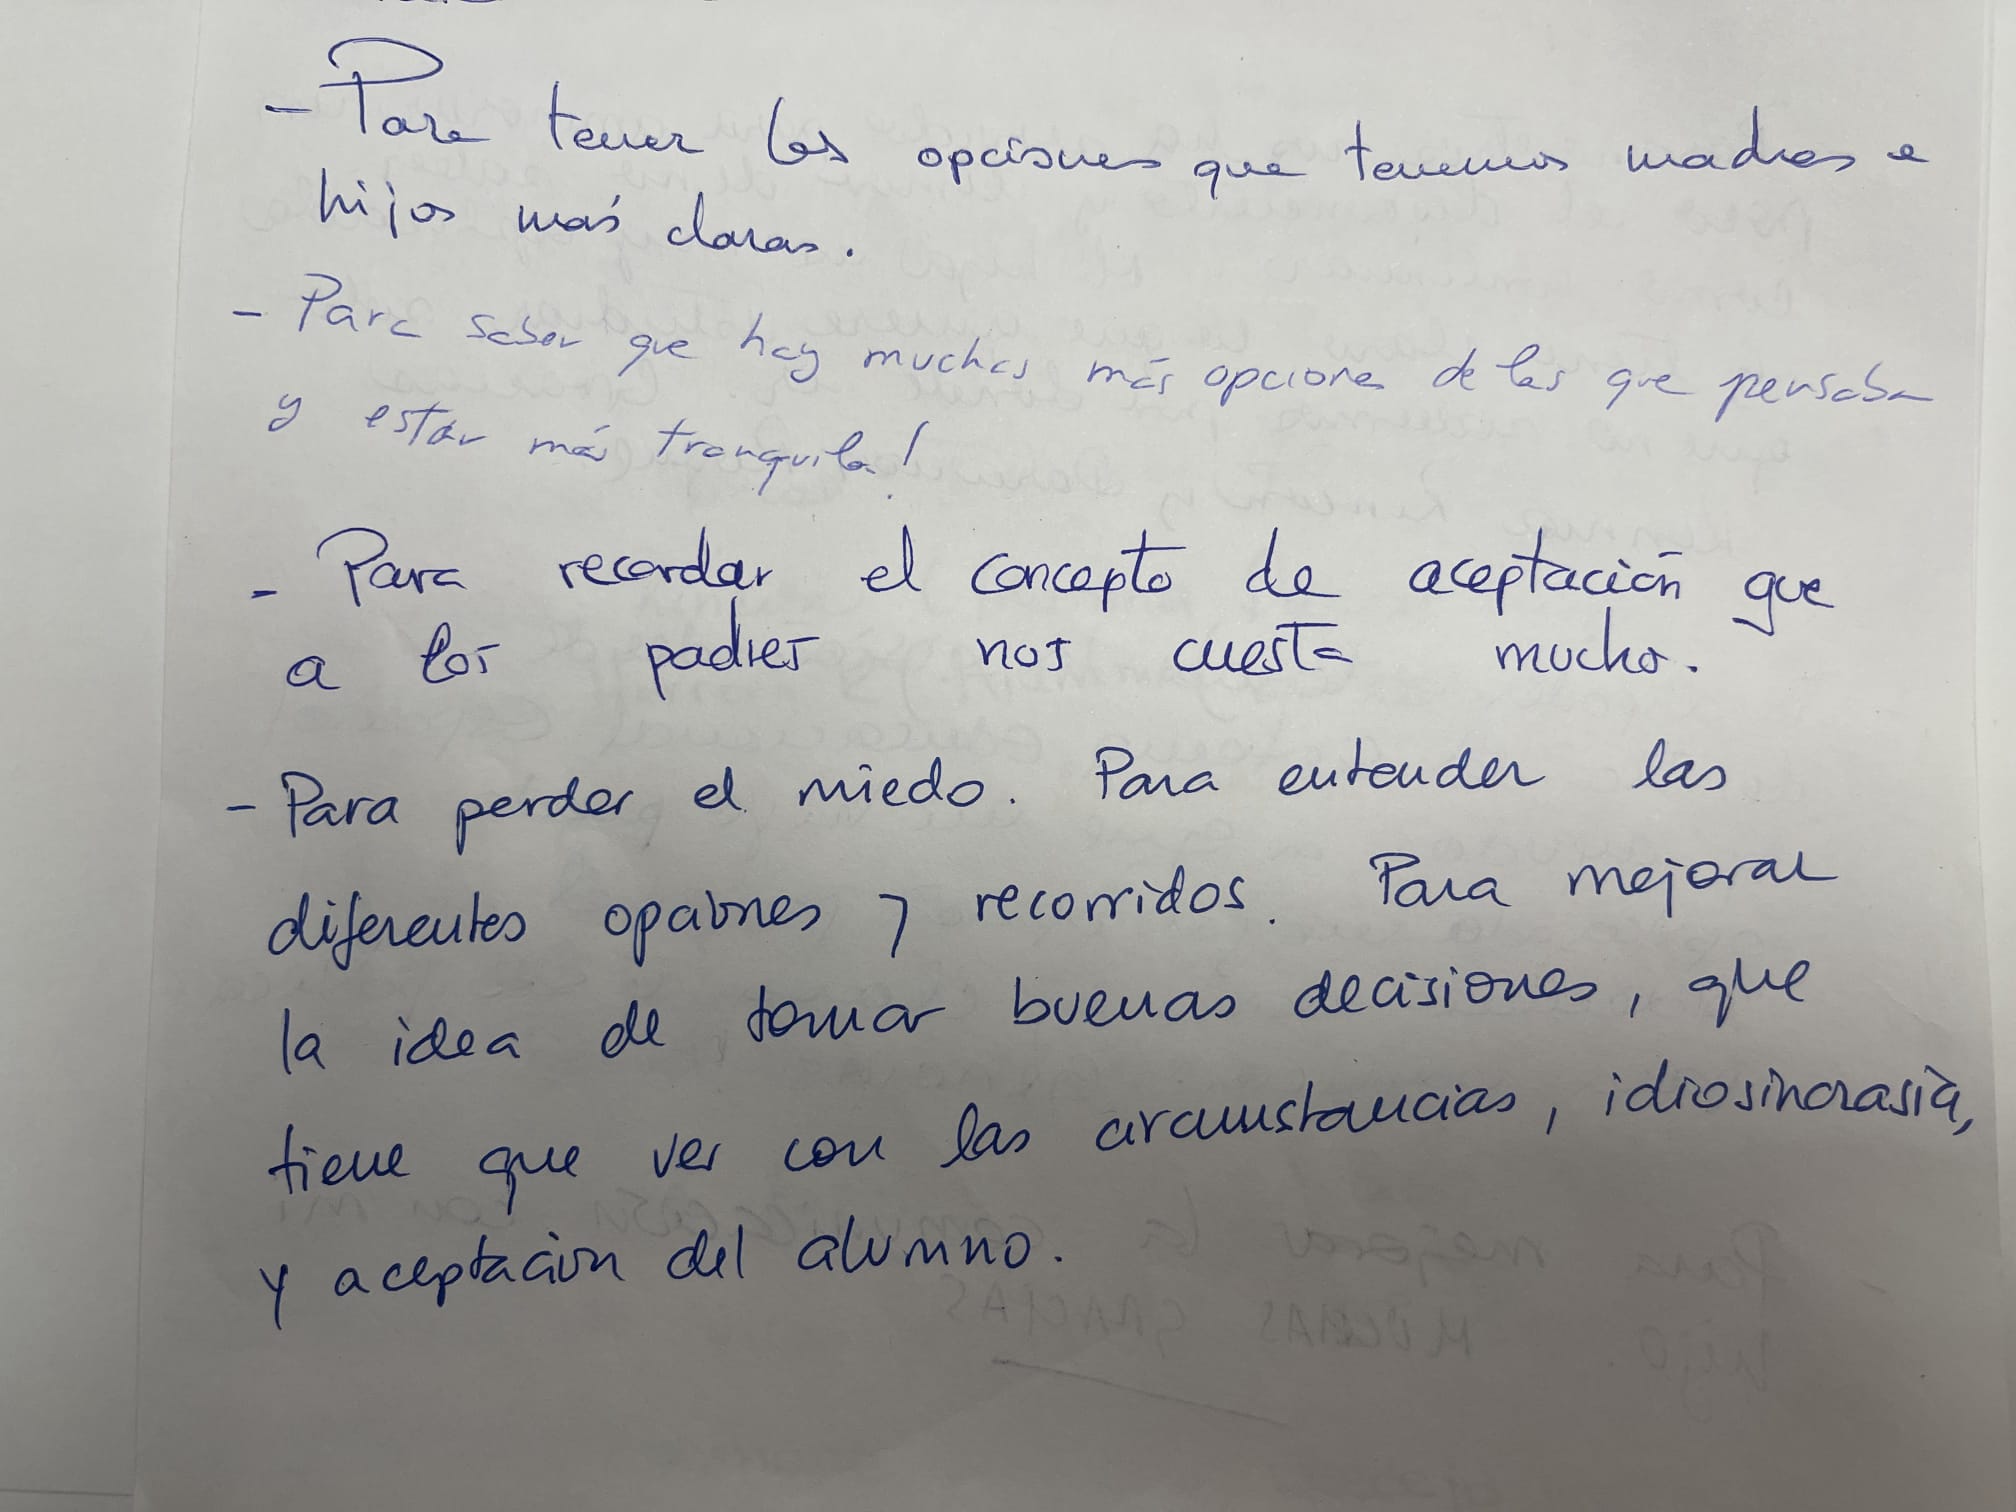 - Para tener las opciones que tenemos madres e
hijos más claras.
- Para saber que hay muchas más opciones de las que pensaba
y estar más tranquila!
- Para recordar el concepto de aceptación que
a los padres nos cuesta mucho.
- Para perder el miedo. Para entender las
diferentes opciones y recorridos. Para mejorar
la idea de tomar buenas decisiones, que
tiene que ver con las circunstancias, idiosincrasia,
y aceptación del alumno.